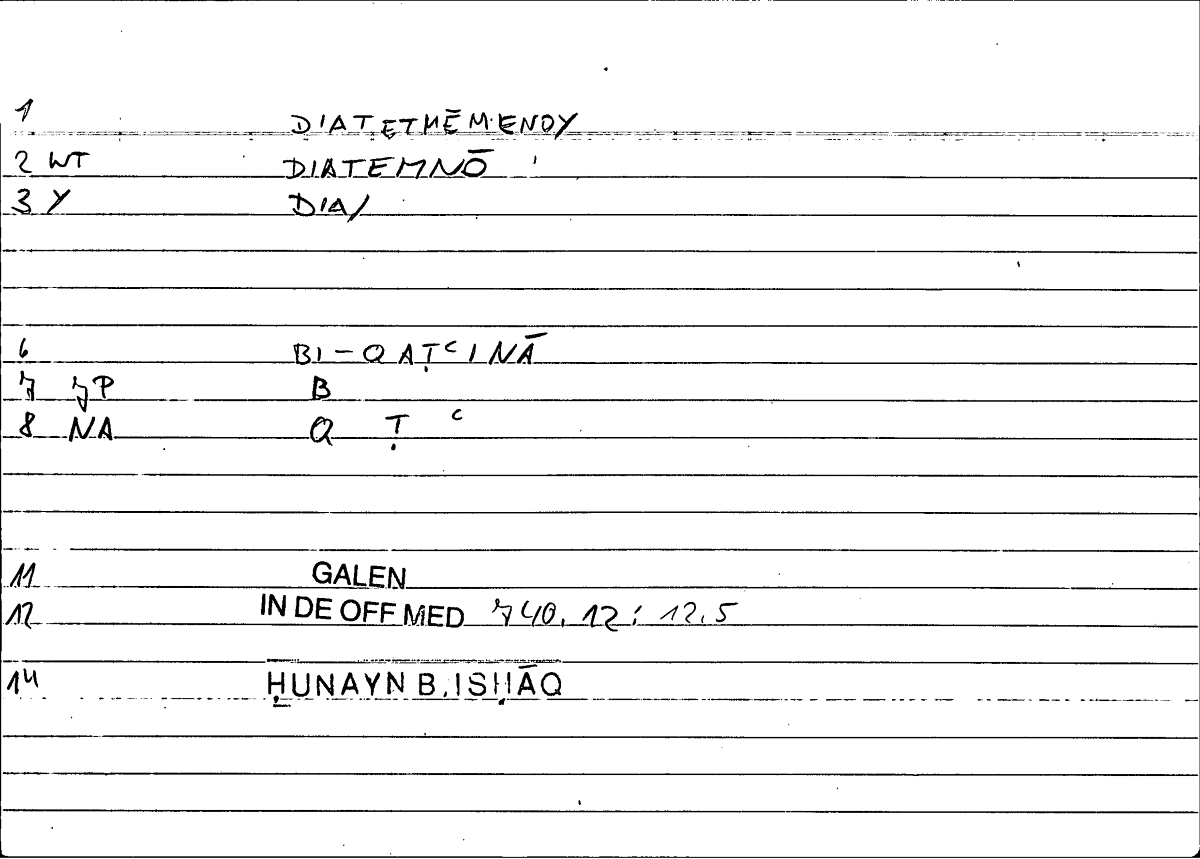 1 DIATETMĒMENOY
2 WT DIATEMNŌ
3 Y DIA/
6 BI-QAṬʿINĀ
7 JP B
8 NA Q Ṭ ʿ
11 GALEN
12 IN DE OFF MED 740.12 : 12.5
14 ḤUNAYN B. ISḤĀQ